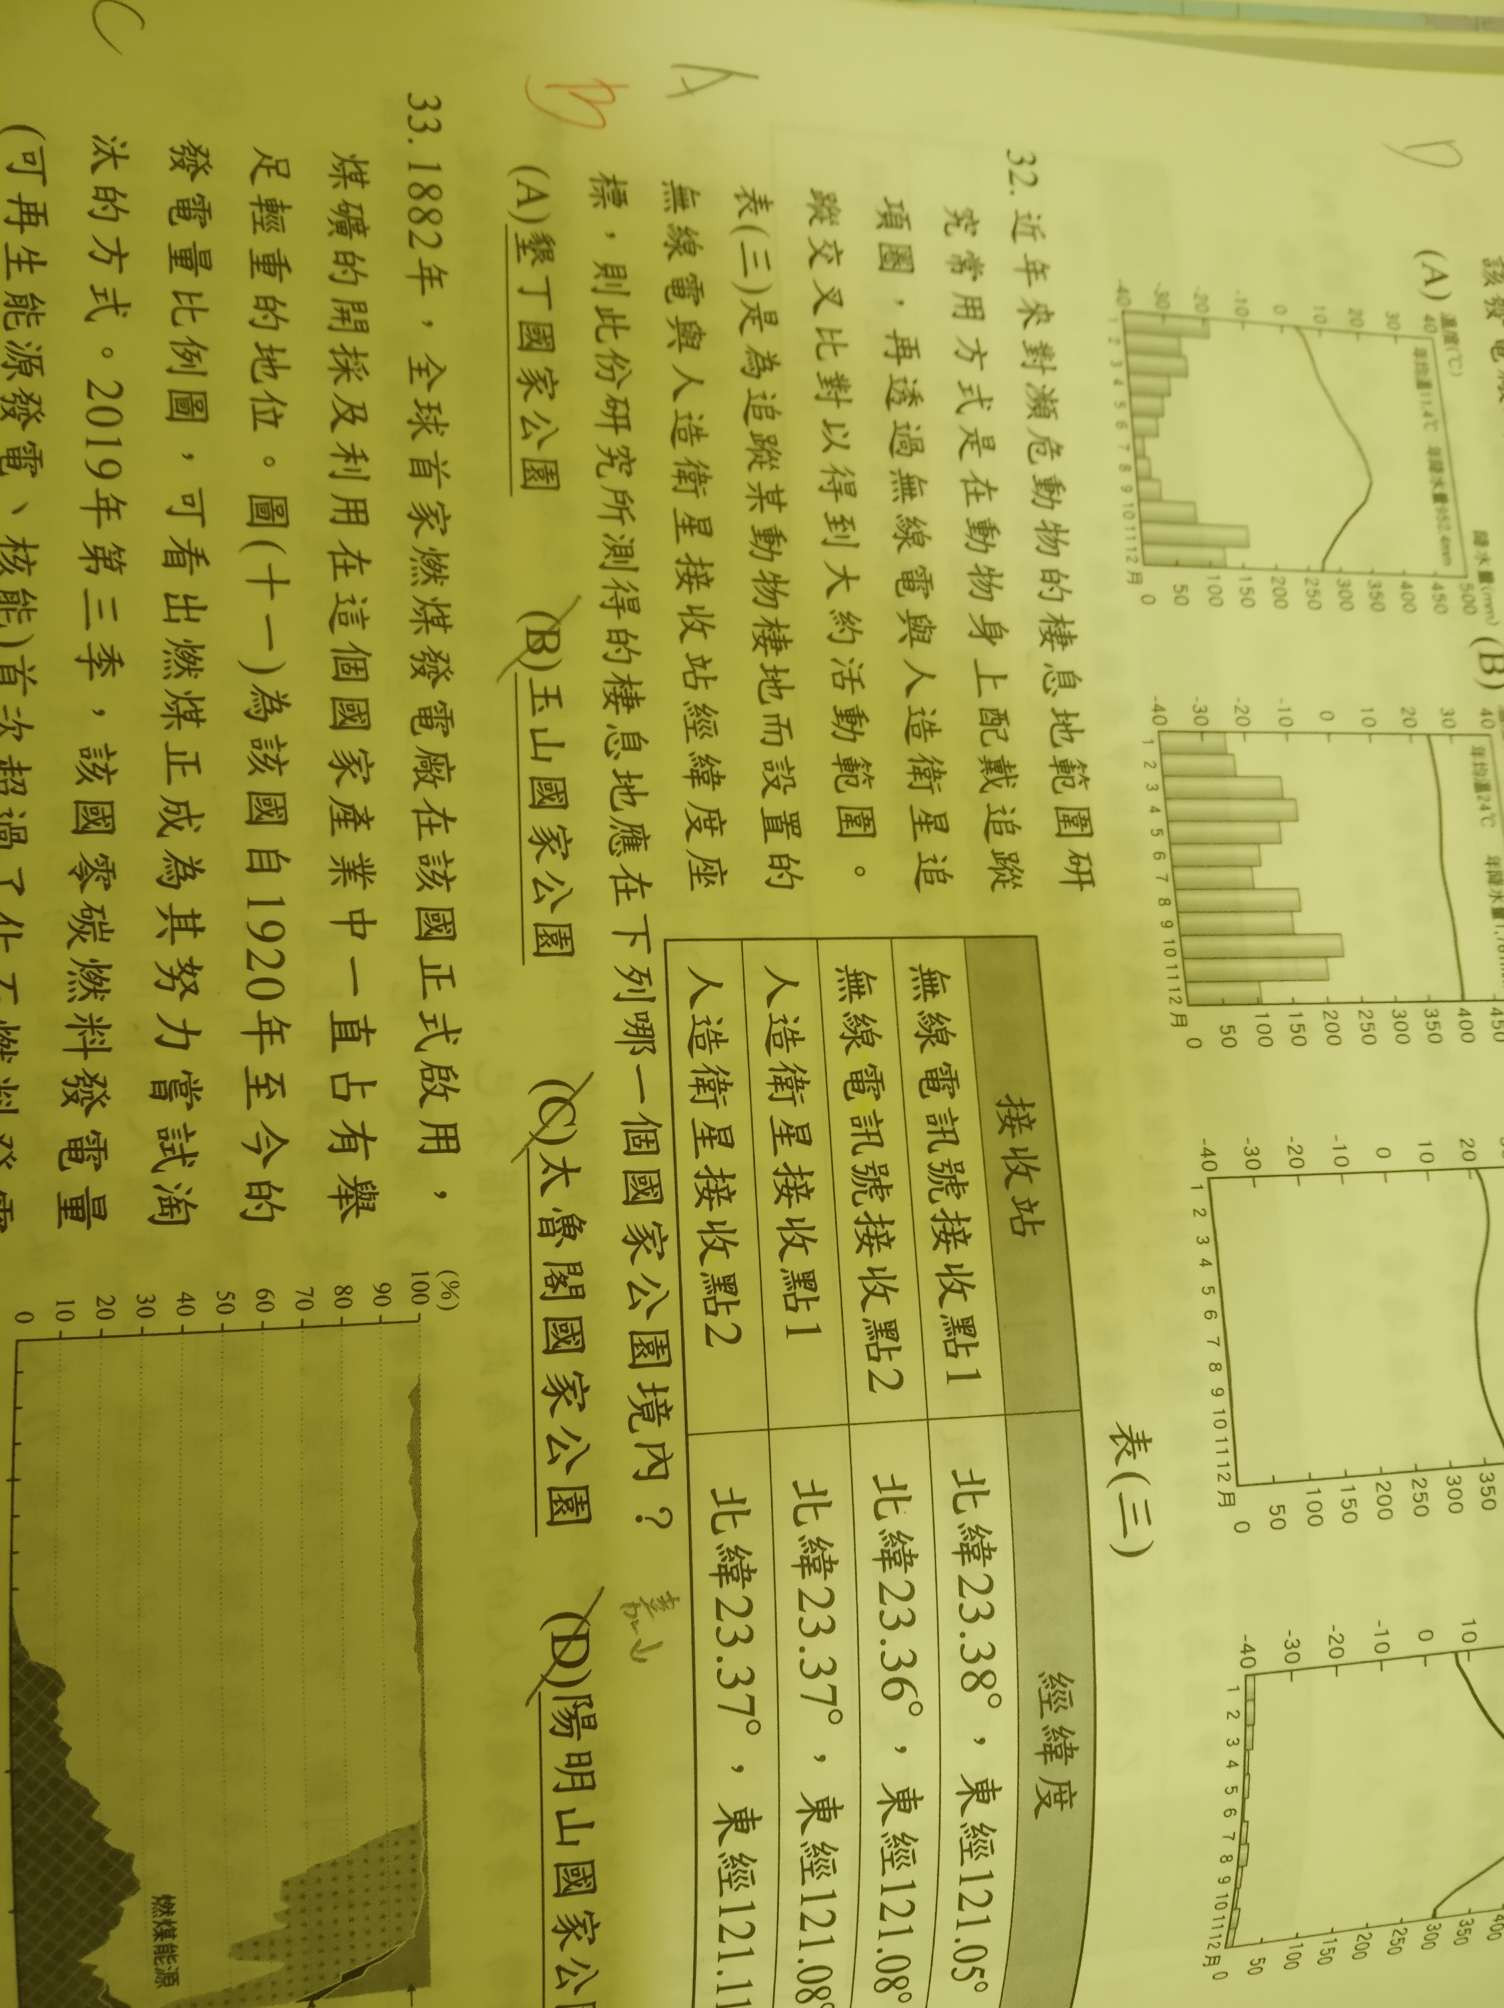 D
該發電
(A)
溫度(℃)
降水量(mm)
年均溫11.4℃ 年降水量952.4mm
40
30
20
10
0
-10
-20
-30
-40
500
450
400
350
300
250
200
150
100
50
0
1 2 3 4 5 6 7 8 9 10 11 12 月
(B)
年均溫24℃
40
30
20
10
0
-10
-20
-30
-40
450
400
350
300
250
200
150
100
50
0
1 2 3 4 5 6 7 8 9 10 11 12 月
20
10
0
-10
-20
-30
-40
350
300
250
200
150
100
50
0
1 2 3 4 5 6 7 8 9 10 11 12 月
10
0
-10
-20
-30
-40
400
350
300
250
200
150
100
50
0
1 2 3 4 5 6 7 8 9 10 11 12 月
A
32. 近年來對瀕危動物的棲息地範圍研
究常用方式是在動物身上配戴追蹤
項圈，再透過無線電與人造衛星追
蹤交叉比對以得到大約活動範圍。
表(三)是為追蹤某動物棲地而設置的
無線電與人造衛星接收站經緯度座
標，則此份研究所測得的棲息地應在下列哪一個國家公園境內？
表(三)
接收站 經緯度
無線電訊號接收點1 北緯23.38°，東經121.05°
無線電訊號接收點2 北緯23.36°，東經121.08°
人造衛星接收點1 北緯23.37°，東經121.08°
人造衛星接收點2 北緯23.37°，東經121.11
B
(A)墾丁國家公園 (B)玉山國家公園 (C)太魯閣國家公園 (D)陽明山國家公
C
33. 1882年，全球首家燃煤發電廠在該國正式啟用，
煤礦的開採及利用在這個國家產業中一直占有舉
足輕重的地位。圖(十一)為該國自1920年至今的
發電量比例圖，可看出燃煤正成為其努力嘗試淘
汰的方式。2019年第三季，該國零碳燃料發電量
(可再生能源發電、核能)首次超過了化石燃料發電
(%)
100
90
80
70
60
50
40
30
20
10
0
燃煤能源